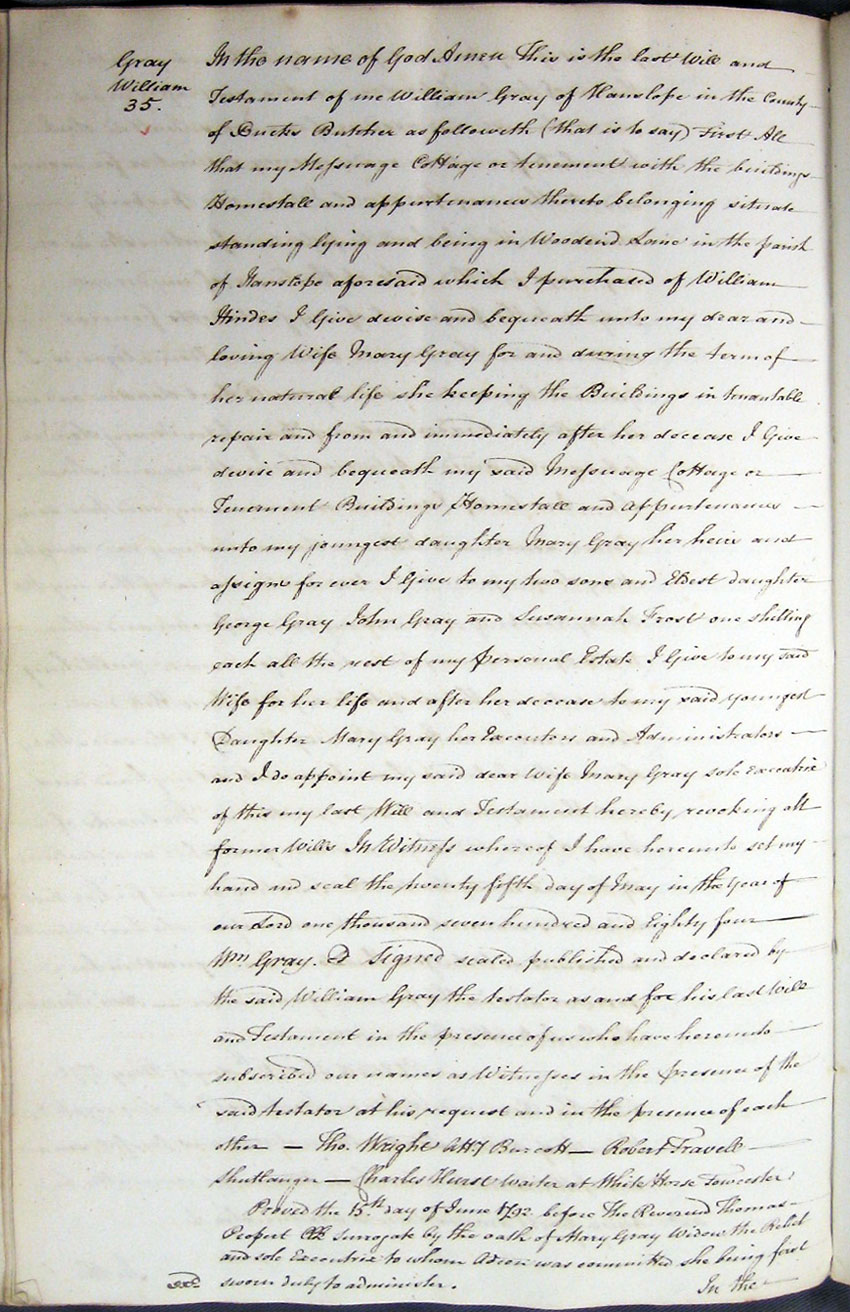 Gray
William
35.
In the name of God Amen This is the last Will and
Testament of me William Gray of Hanslope in the County
of Bucks Butcher as followeth (that is to say) First All
that my Messuage Cottage or tenement with the buildings
Homestall and appurtenances thereto belonging situate
standing lying and being in Woodend Lane in the parish
of Hanslope aforesaid which I purchased of William
Hindes I Give devise and bequeath unto my dear and
loving Wife Mary Gray for and during the term of
her natural life she keeping the Buildings in tenantable
repair and from and immediately after her decease I Give
devise and bequeath my said Messuage Cottage or
Tenement Buildings Homestall and Appurtenances
unto my youngest daughter Mary Gray her heirs and
assigns for ever I Give to my two sons and Eldest daughter
George Gray John Gray and Susannah Frost one shilling
each all the rest of my personal Estate I Give to my said
Wife for her life and after her decease to my said youngest
Daughter Mary Gray her Executors and Administrators
and I do appoint my said dear Wife Mary Gray sole Executrix
of this my last Will and Testament hereby revoking all
former Wills In Witness whereof I have hereunto set my
hand and seal the twenty fifth day of May in the Year of
our Lord one thousand seven hundred and Eighty four
Wm Gray. Signed sealed published and declared by
the said William Gray the testator as and for his last Will
and Testament in the presence of us who have hereunto
subscribed our names as Witnesses in the presence of the
said testator at his request and in the presence of each
other — Tho. Wright Atty Burcott — Robert Travell
Shutlanger — Charles Hurst Waiter at White Horse Towcester
Proved the 15th day of June 1792 before The Reverend Thomas
Propert Surrogate by the oath of Mary Gray Widow the Relict
and sole Executrix to whom Admon was committed she being first
sworn duly to administer.
In the